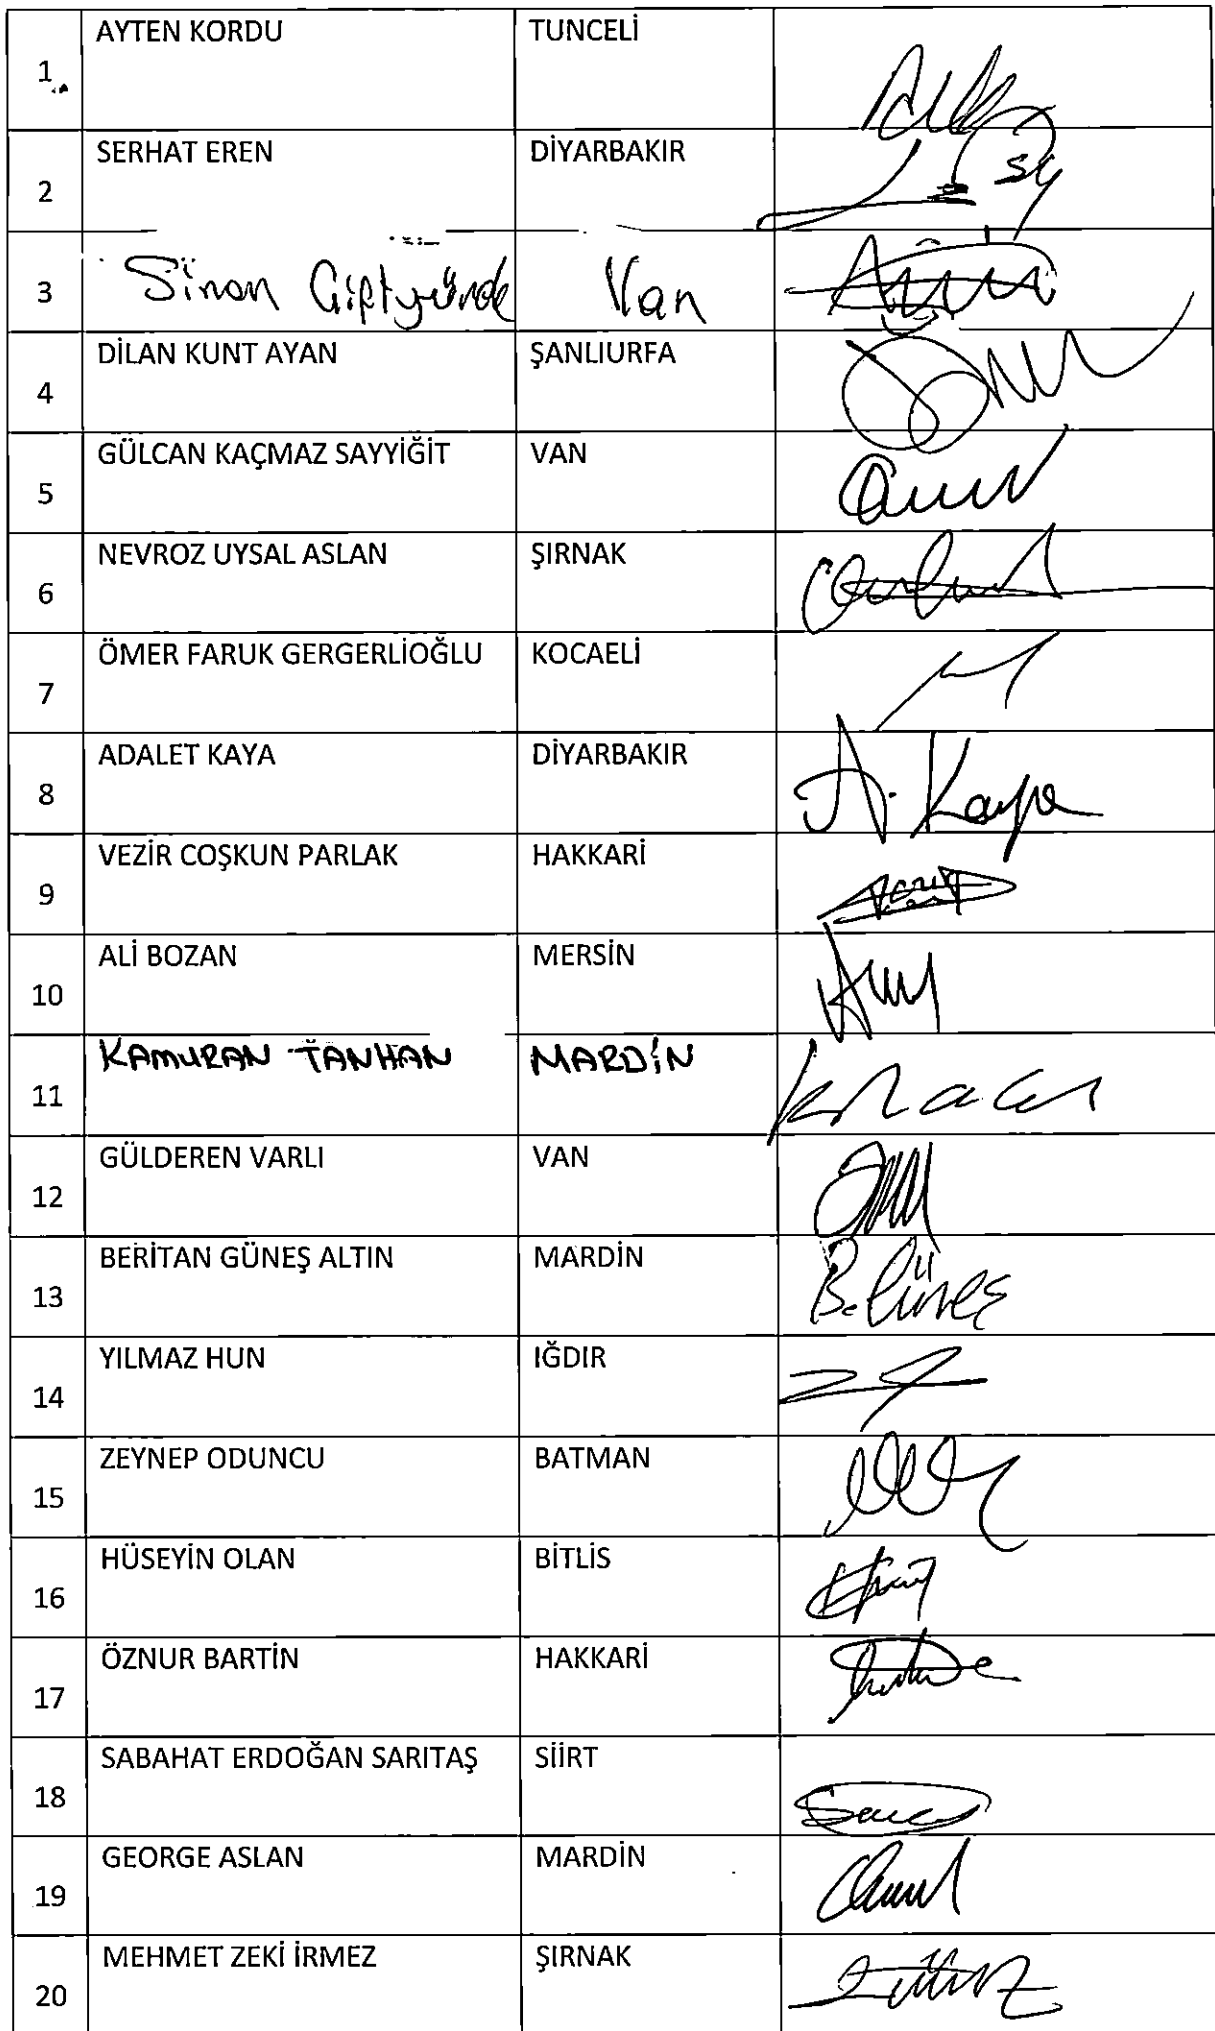 1 AYTEN KORDU TUNCELİ
2 SERHAT EREN DİYARBAKIR
3 Sinan Çiftyürek Van
4 DİLAN KUNT AYAN ŞANLIURFA
5 GÜLCAN KAÇMAZ SAYYİĞİT VAN
6 NEVROZ UYSAL ASLAN ŞIRNAK
7 ÖMER FARUK GERGERLİOĞLU KOCAELİ
8 ADALET KAYA DİYARBAKIR A. Kaya
9 VEZİR COŞKUN PARLAK HAKKARİ
10 ALİ BOZAN MERSİN
11 KAMURAN TANHAN MARDİN
12 GÜLDEREN VARLI VAN
13 BERİTAN GÜNEŞ ALTIN MARDİN B. Güneş
14 YILMAZ HUN IĞDIR
15 ZEYNEP ODUNCU BATMAN
16 HÜSEYİN OLAN BİTLİS
17 ÖZNUR BARTİN HAKKARİ
18 SABAHAT ERDOĞAN SARITAŞ SİİRT
19 GEORGE ASLAN MARDİN
20 MEHMET ZEKİ İRMEZ ŞIRNAK